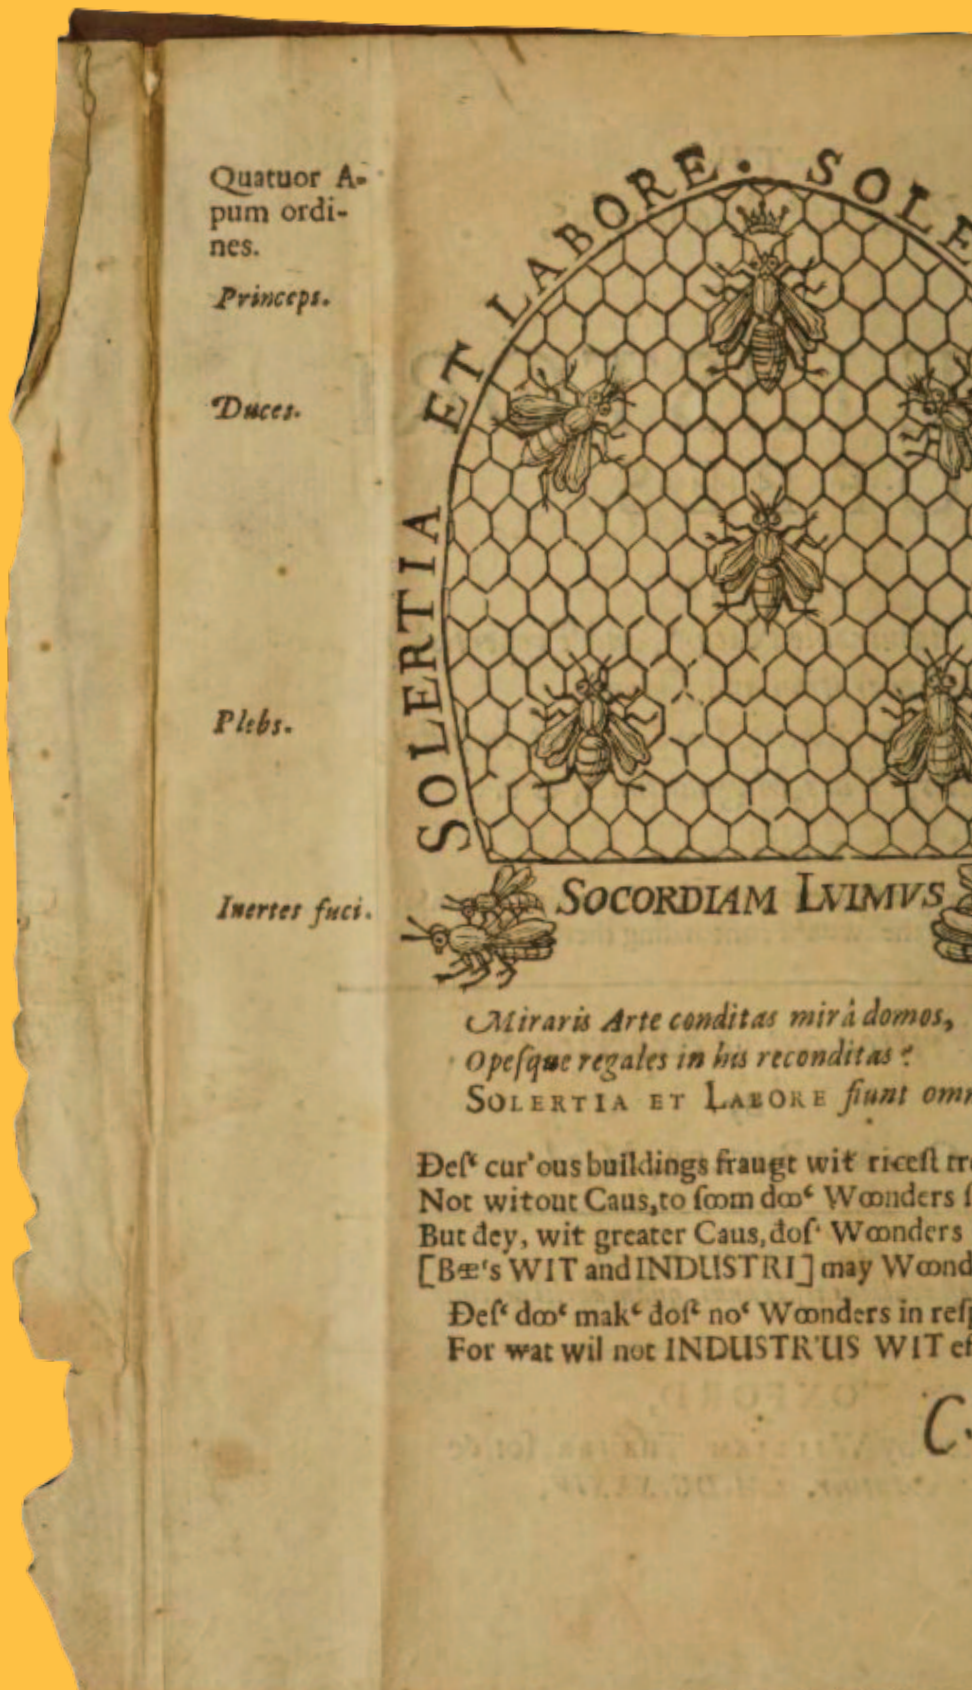 Quatuor A-
pum ordi-
nes.
Princeps.
Duces.
Plebs.
Inertes fuci.
SOLERTIA ET LABORE. SOLE
SOCORDIAM LVIMVS
Miraris Arte conditas mirâ domos,
Opeſque regales in his reconditas?
SOLERTIA ET LABORE fiunt omn
Ðeſ‘ cur'ous buildings fraugt wit‘ riceſt tre
Not witout Caus, to ſoom doo‘ Woonders ſ
But ðey, wit greater Caus, ðoſ‘ Woonders
[Bee‘s WIT and INDUSTRI] may Woond
Ðeſ‘ doo‘ mak‘ ðoſ‘ no‘ Woonders in reſp
For wat wil not INDUSTR'US WIT ef
C.